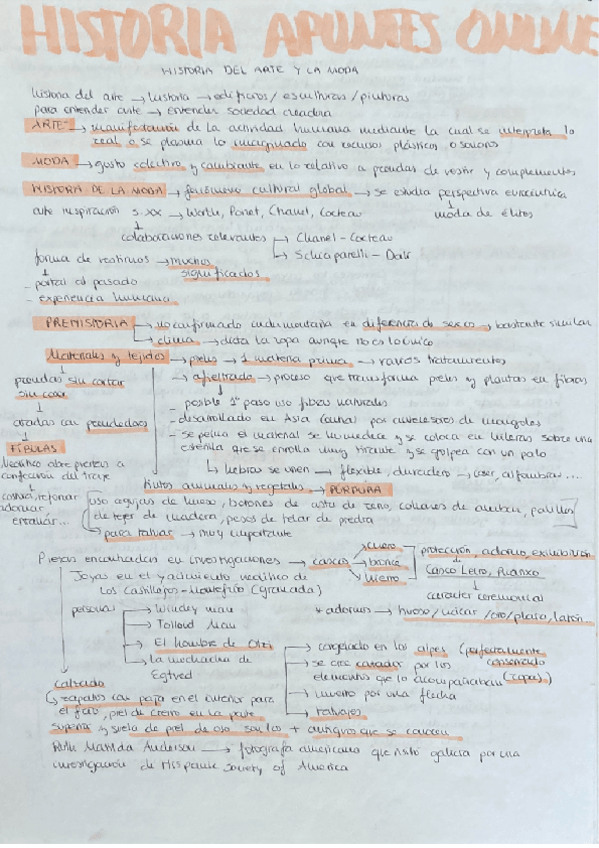 HISTORIA APUNTES ONLINE
HISTORIA DEL ARTE Y LA MODA
historia del arte → historia → edificios / esculturas / pinturas
para entender arte → entender sociedad creadora
ARTE → manifestación de la actividad humana mediante la cual se interpreta lo
real o se plasma lo imaginado con recursos plásticos o sonoros
MODA → gusto colectivo y cambiante en lo relativo a prendas de vestir y complementos
HISTORIA DE LA MODA → fenómeno cultural global → se estudia perspectiva eurocéntrica
arte inspiración s.XX → Worth, Poiret, Chanel, Cocteau
moda de élites
colaboraciones relevantes → Chanel - Cocteau
→ Schiaparelli - Dalí
forma de vestirnos → muchos
significados
- portal al pasado
- experiencia humana
PREHISTORIA → no confirmado indumentaria en diferencia de sexos → bastante similar
→ clima → dicta la ropa aunque no es lo único
Materiales y tejidos → pieles → 1ª materia prima → varios tratamientos
→ afieltrado → proceso que transforma pieles y plantas en fibras
prendas sin cortar
sin coser
- posible 1º paso uso fibras naturales
- desarrollado en Asia (auna) por antecesores de mongoles
atadas con prendedores
- se peina el material se humedece y se coloca en hileras sobre una
esterilla que se enrolla muy tirante y se golpea con un palo
FÍBULAS
↳ hebras se unen → flexible, duradero → coser, alfombras ....
Neolítico abre puertas a
confección del traje
tintes animales y vegetales → PÚRPURA
combinar, reformar
adornar,
entallar...
uso agujas de hueso, botones de asta de reno, collares de ambar, palillos
de tejer de madera, pesos de telar de piedra
↳ para tatuar → muy importante
Piezas encontradas en investigaciones → cascos → cuero
→ bronce
→ hierro
protección, adorno, exhibición
Casco Leiro, Rianxo
carácter ceremonial
Joyas en el yacimiento neolítico de
Los Castillejos - Montefrío (granada)
* adornos → hueso / nácar / oro / plata, latón..
personas → Windeby man
→ Tollund Man
→ El hombre de Otzi
→ la muchacha de
Egtved
→ congelado en los alpes (perfectamente
conservado
→ se cree cazador por los
elementos que lo acompañaban (capa..)
→ muerto por una flecha
→ tatuajes
calzado
↳ zapatos con paja en el interior para
el frío, piel de ciervo en la parte
superior y suela de piel de oso son los + antiguos que se conocen
Ruth Matilda Anderson → fotógrafa americana que visitó galicia por una
investigación de Hispanic Society of America